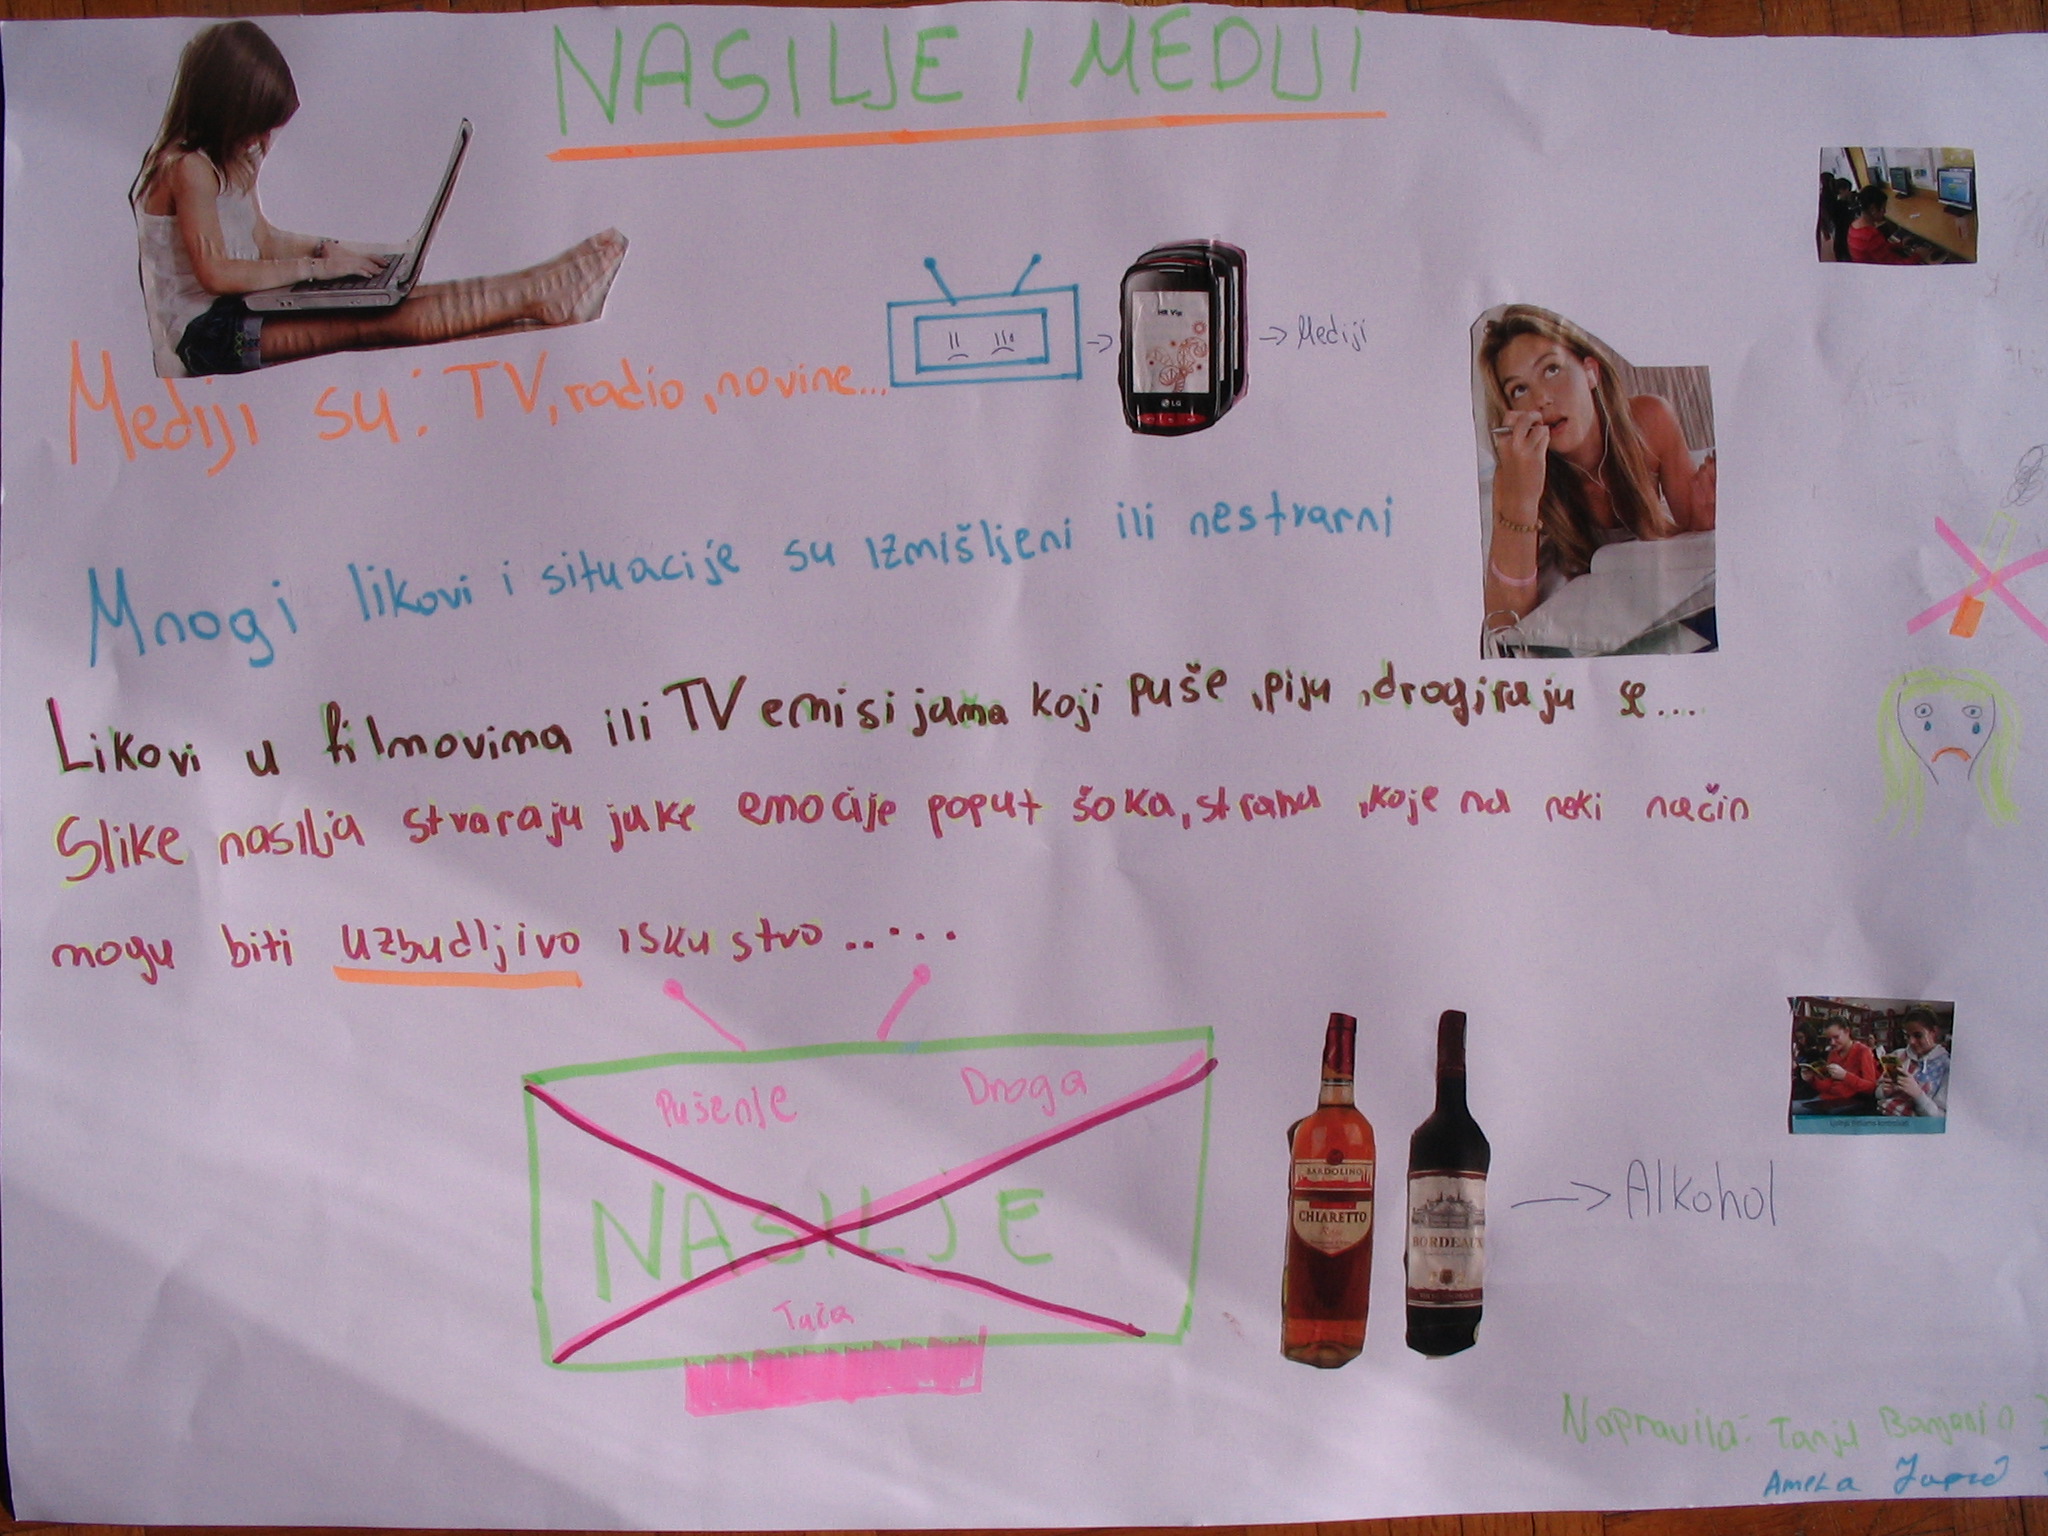 NASILJE I MEDIJI
Mediji su: TV, radio, novine...
→ Mediji
LG
Mnogi likovi i situacije su izmišljeni ili nestvarni
Likovi u filmovima ili TV emisijama koji puše, piju, drogiraju se....
Slike nasilja stvaraju jake emocije poput šoka, straha, koje na neki način
mogu biti uzbudljivo iskustvo .....
Pušenje Droga
NASILJE
Tuča
BARDOLINO
CHIARETTO
BORDEAUX
→ Alkohol
Napravila: Tanja
Amela